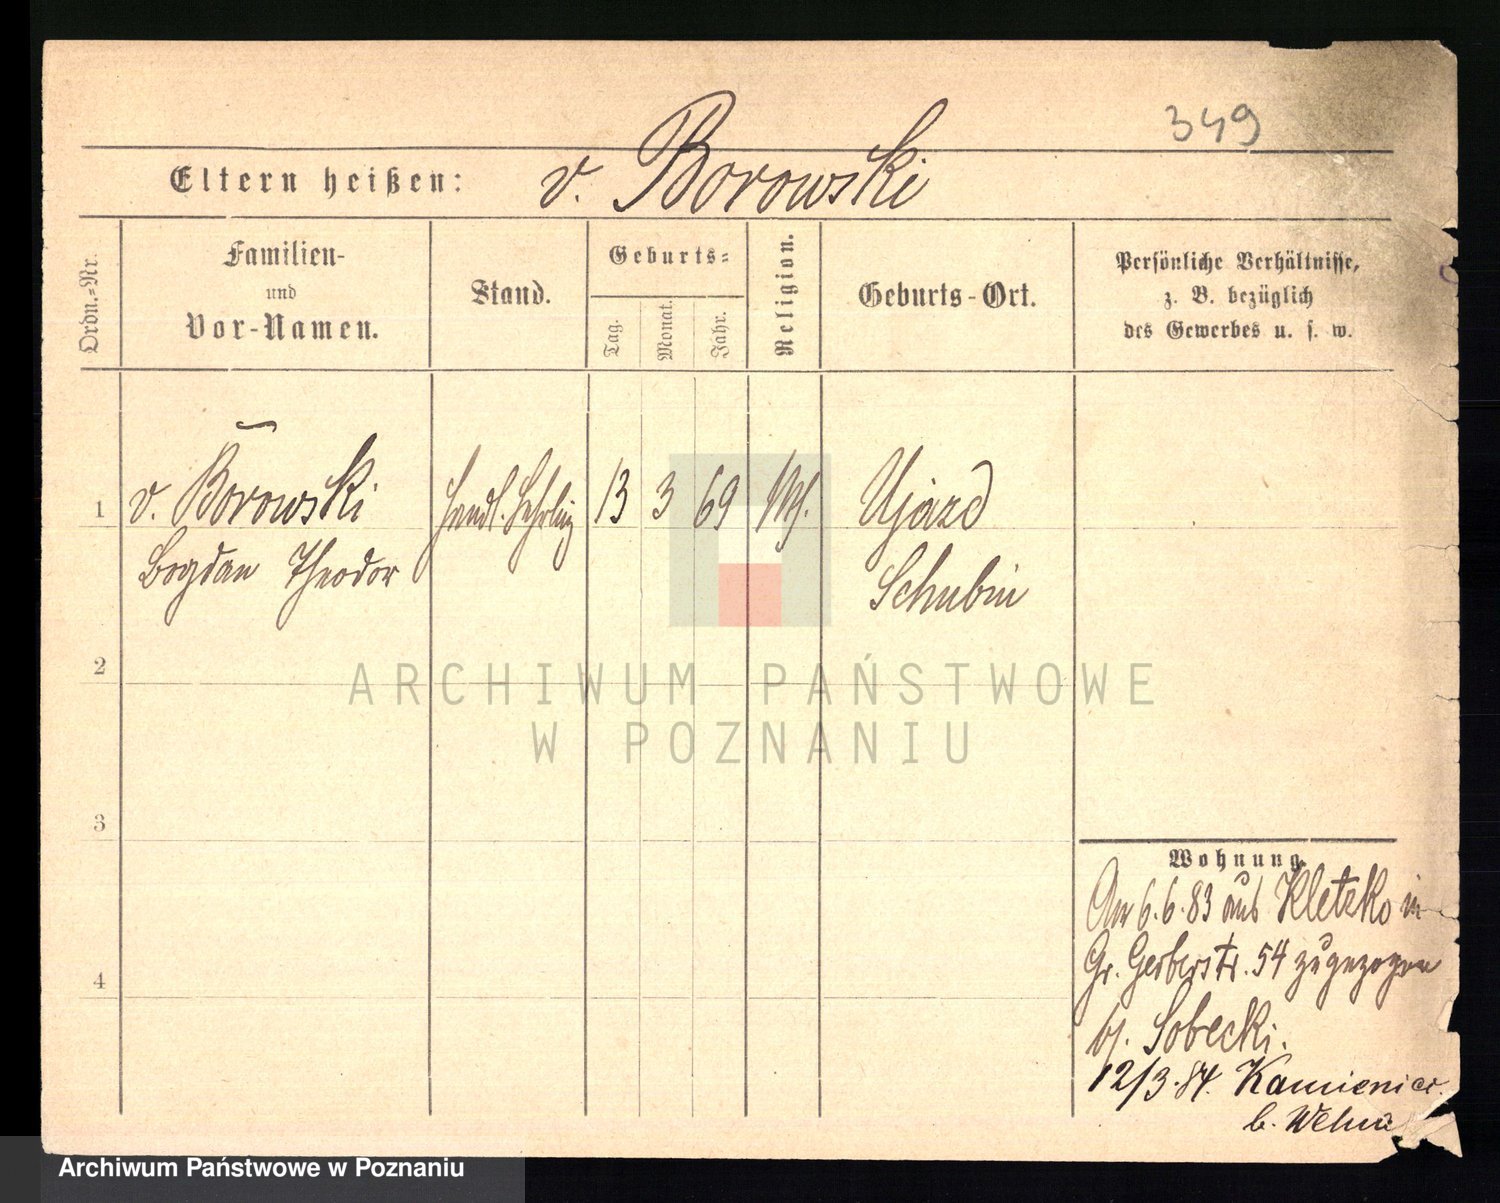 349
Eltern heißen: v. Borowski
Ordn.-Nr.
Familien-
und
Vor-Namen.
Stand.
Geburts-
Tag.
Monat.
Jahr.
Religion.
Geburts-Ort.
Persönliche Verhältnisse,
z. B. bezüglich
des Gewerbes u. s. w.
1 v. Borowski Handl. Lehrling 13 3 69 Ujazd
Bogdan Theodor Schubin
2
3
4
Wohnung.
Am 6.6.83 aus Kletzko in
Gr. Gerberstr. 54 zugezogen
b/. Sobecki.
12/3.84. Kamieniec
b. Welna
ARCHIWUM PAŃSTWOWE
W POZNANIU
Archiwum Państwowe w Poznaniu